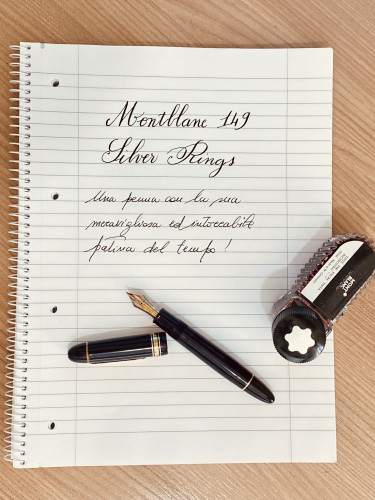 Montblanc 149
Silver Rings
Una penna con la sua
meravigliosa ed intoccabile
patina del tempo!
MONT
BLANC